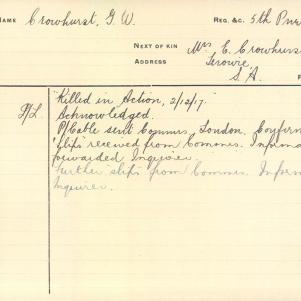 NAME Crowhurst, G. W. REG. &C. 5th Pnr
NEXT OF KIN Mrs E. Crowhurs
ADDRESS Terowie,
S.A.
P/L. "Killed in Action, 2/12/17."
Acknowledged.
P/Cable sent Commrs, London. Confirm
slips received from Commrs. Informa
forwarded Inquirer.
Further slips from Commrs. Infor
Inquirer.